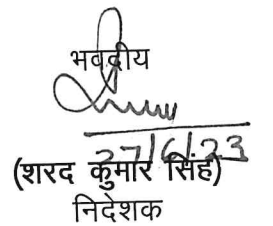 भवदीय
27/6/23
(शरद कुमार सिंह)
निदेशक